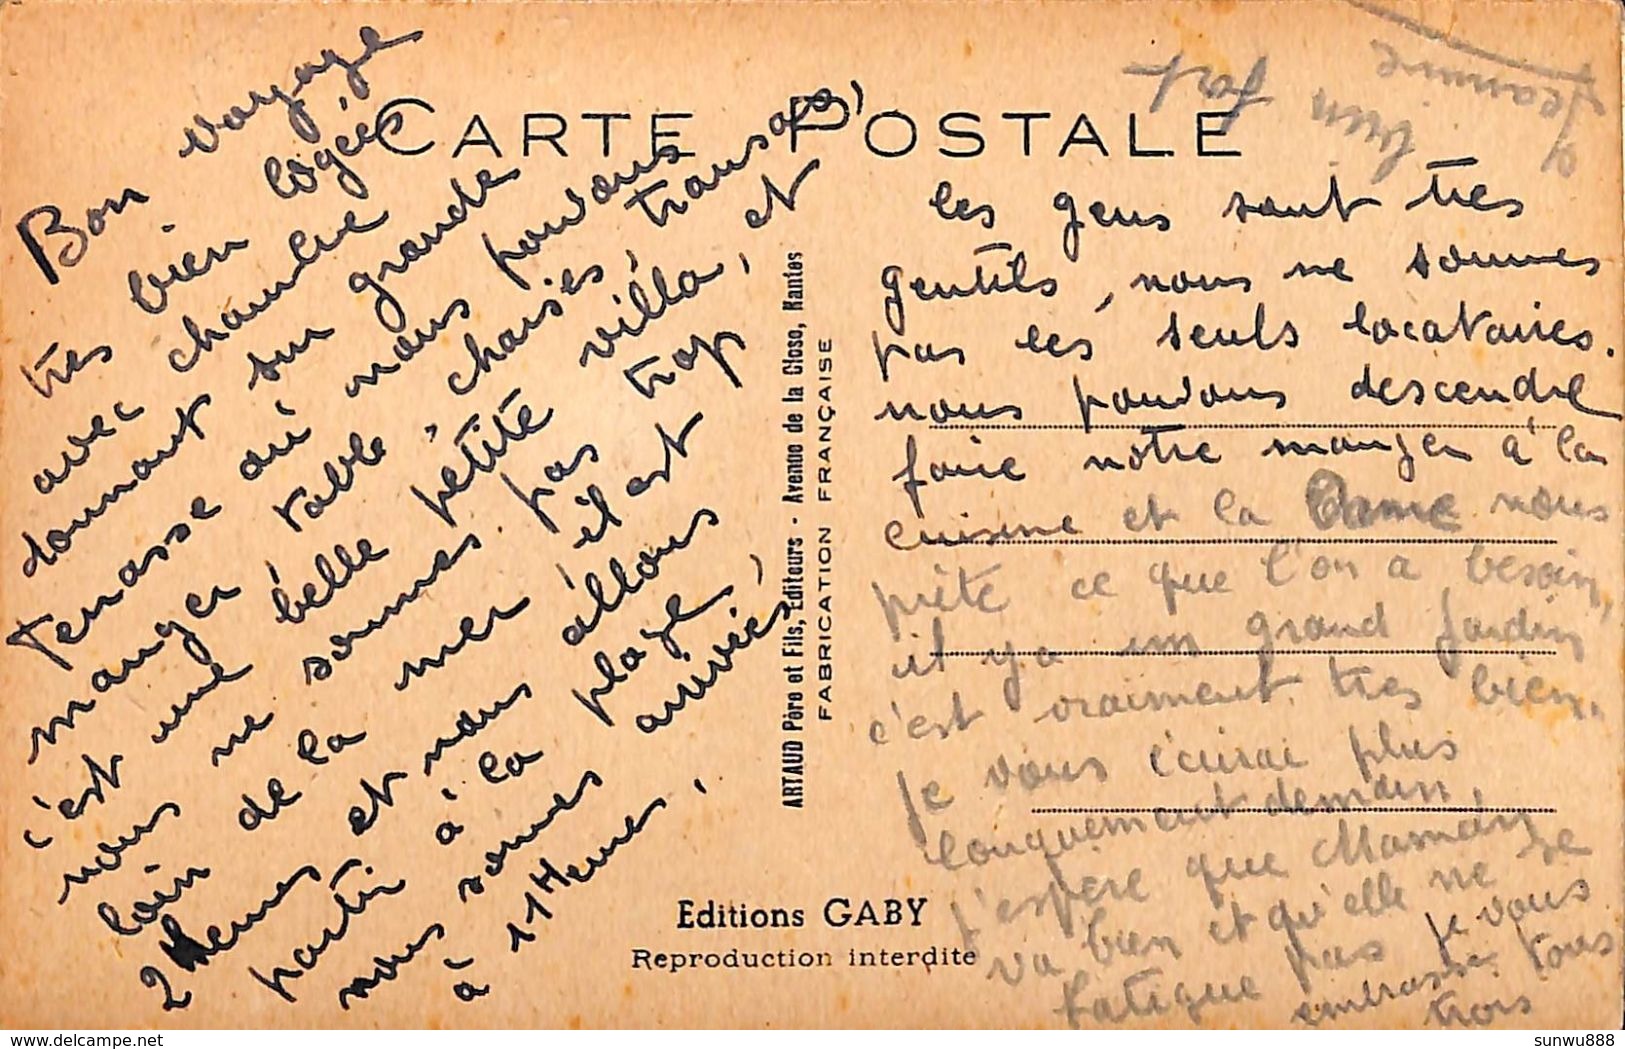 CARTE POSTALE
Bon voyage
tres bien logées
avec chambre
donnant sur grande
terrasse où nous pouvons
manger table, chaises, transats,
c'est une belle petite villa, et
nous ne sommes pas trop
loin de la mer il est
2 Heures et nous allons
partir à la plage,
nous sommes arrivées,
à 11 Heures.
ARTAUD Père et Fils, Editeurs - Avenue de la Close, Nantes
FABRICATION FRANÇAISE
Editions GABY
Reproduction interdite
les gens sont tres
gentils, nous ne sommes
pas les seuls locataires.
nous pouvons descendre
faire notre manger à la
cuisine et la Dame nous
prête ce que l'on a besoin,
il y a un grand jardin
c'est vraiment tres bien.
je vous écrirai plus
longuement demain,
j'espère que Maman
va bien et qu'elle ne se
fatigue pas je vous
embrasse tous
trois
bien fort
Jeannine
sunwu888
delcampe.net